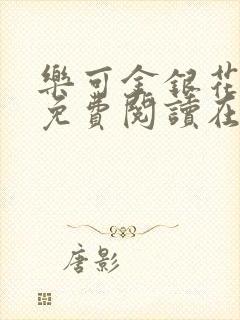 樂可金銀花
免費閱讀在
唐影